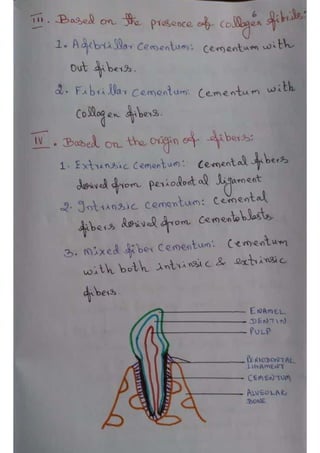 III. Based on the presence of collagen fibrils:
1. Afibrillar Cementum: Cementum with
out fibers.
2. Fibrillar Cementum: Cementum with
collagen fibers.
IV. Based on the origin of fibers:
1. Extrinsic Cementum: Cemental fibers
derived from periodontal ligament
2. Intrinsic Cementum: Cemental
fibers derived from Cementoblasts.
3. Mixed fiber Cementum: Cementum
with both intrinsic & extrinsic
fibers.
ENAMEL
DENTIN
PULP
PERIODONTAL
LIGAMENT
CEMENTUM
ALVEOLAR
BONE